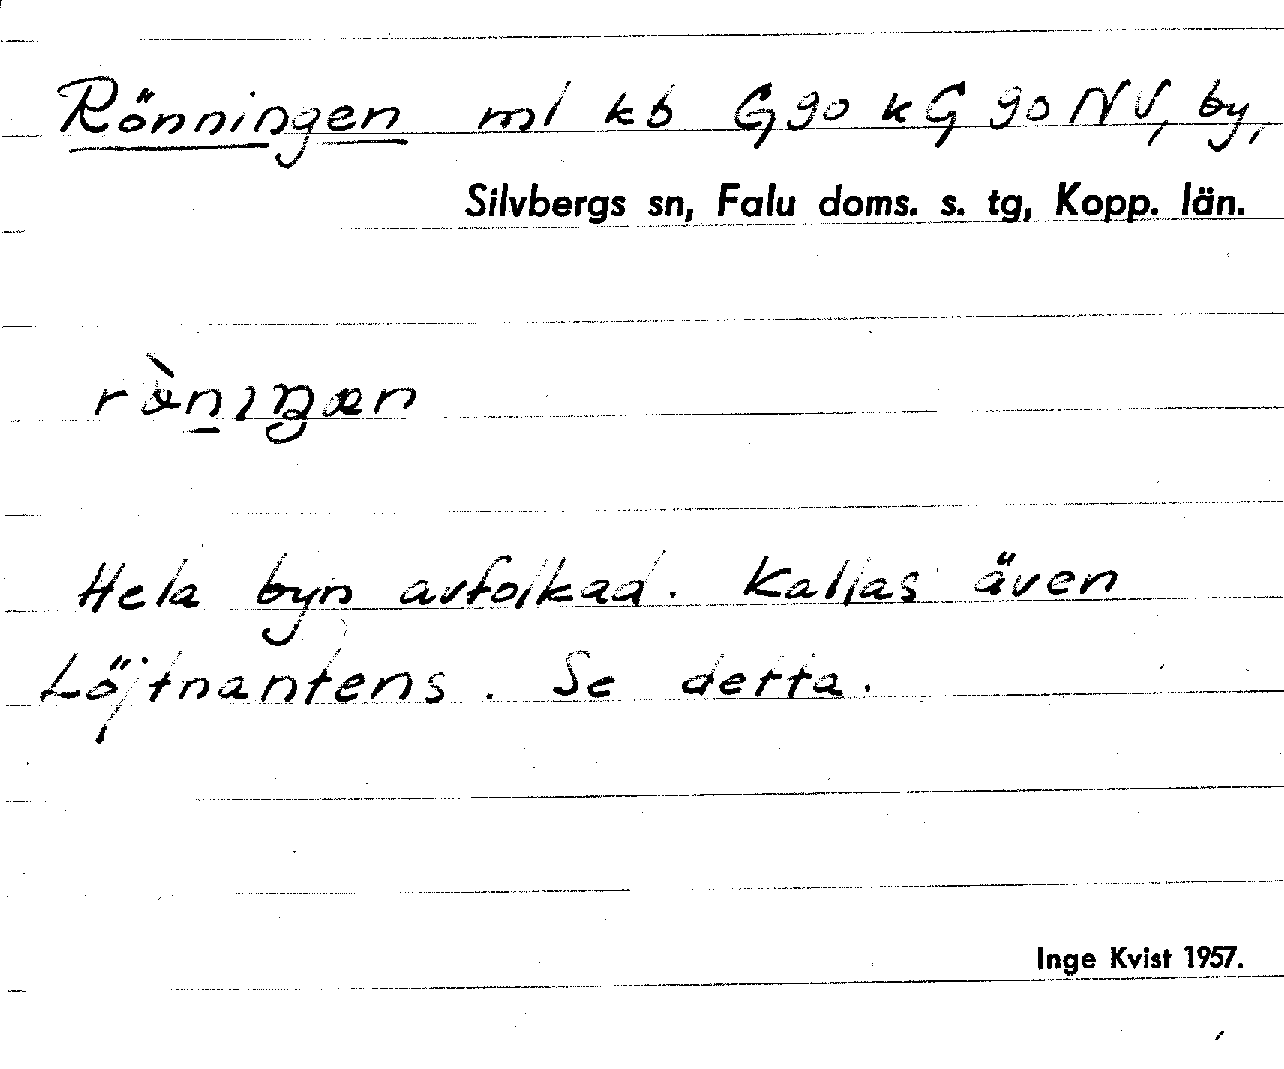 Rönningen ml kb G 90 kG 90 NV, by,
Silvbergs sn, Falu doms. s. tg, Kopp. län.
Hela byn avfolkad. Kallas även
Löjtnantens. Se detta.
Inge Kvist 1957.